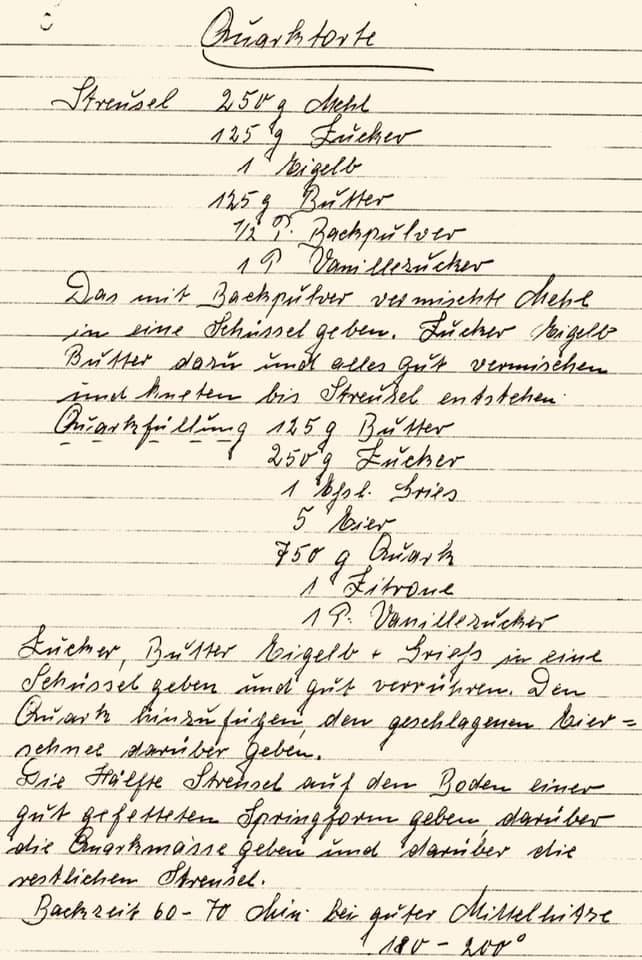 Quarktorte
Streusel 250 g Mehl
125 g Zucker
1 Eigelb
125 g Butter
1/2 P. Backpulver
1 P Vanillezucker
Das mit Backpulver vermischte Mehl
in eine Schüssel geben. Zucker Eigelb
Butter dazu und alles gut vermischen
und kneten bis Streusel entstehen.
Quarkfüllung 125 g Butter
250 g Zucker
1 Essl. Gries
5 Eier
750 g Quark
1 Zitrone
1 P. Vanillezucker
Zucker, Butter Eigelb + Grieß in eine
Schüssel geben und gut verrühren. Den
Quark hinzufügen, den geschlagenen Eier=
schnee darüber geben.
Die Hälfte Streusel auf den Boden einer
gut gefetteten Springform geben, darüber
die Quarkmasse geben und darüber die
restlichen Streusel.
Backzeit 60 - 70 Min. bei guter Mittelhitze
180 - 200°